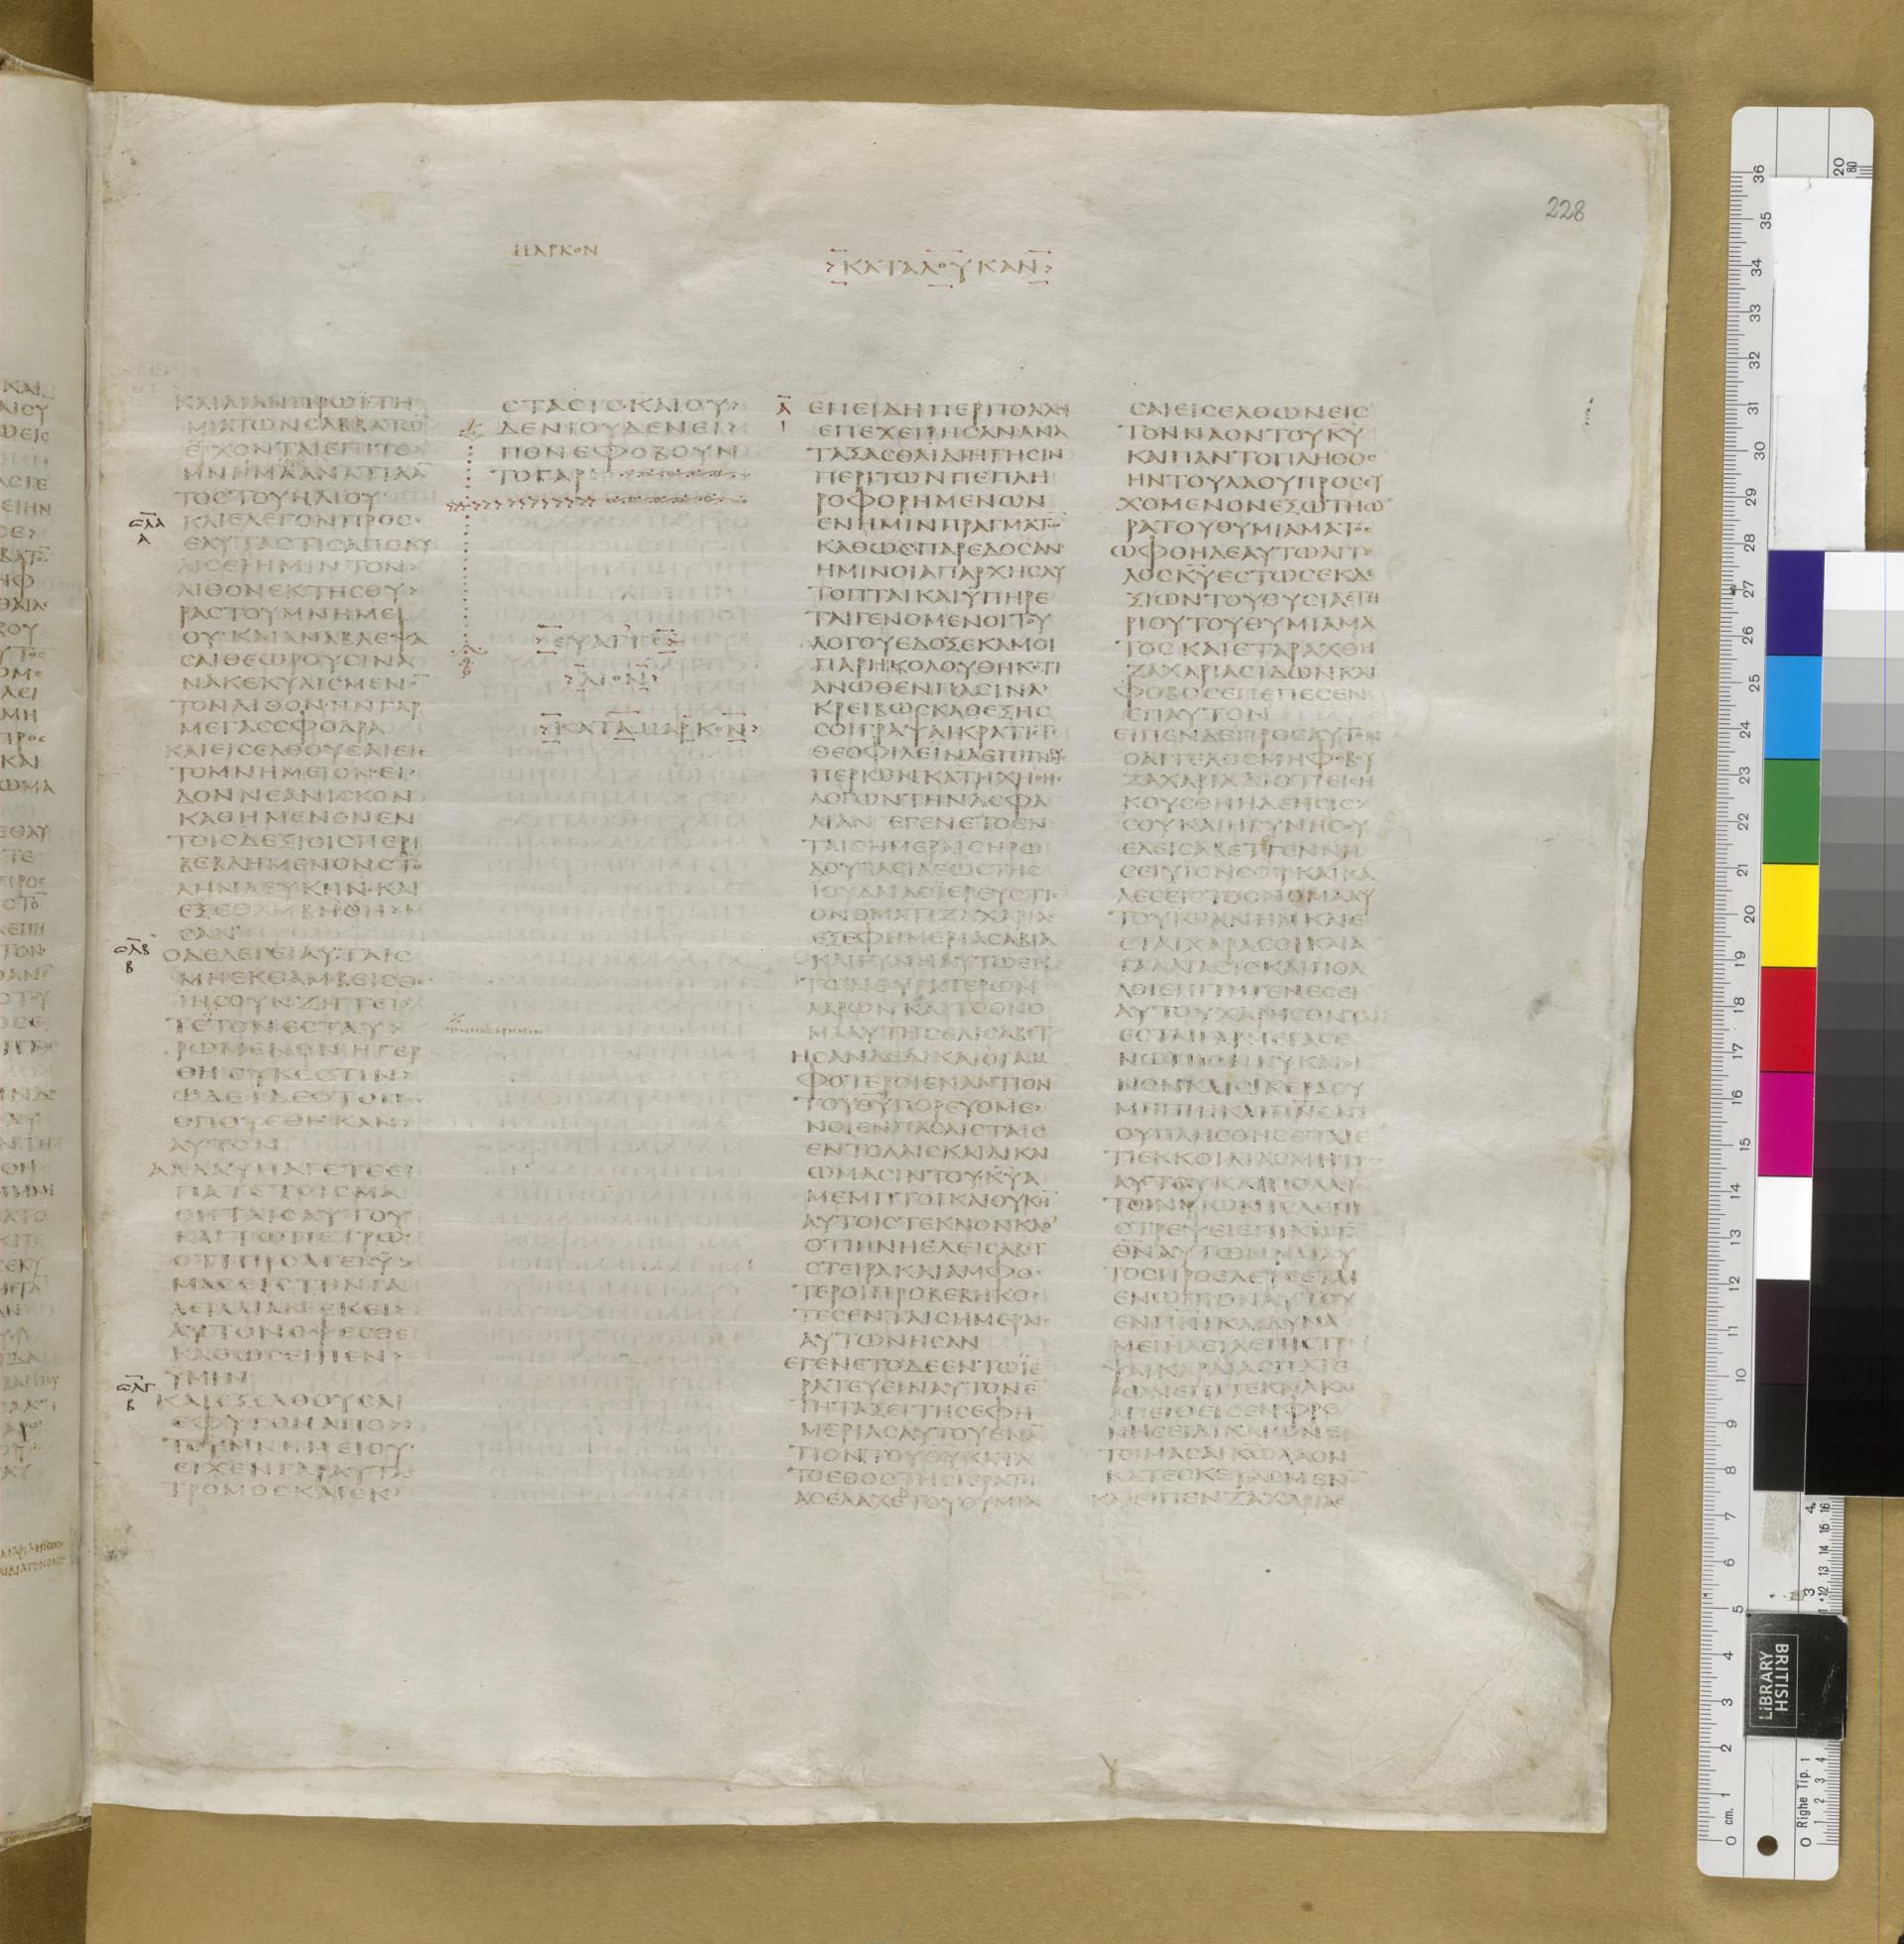 228
ΜΑΡΚΟΝ
ΚΑΤΑΛΟΥΚΑΝ
ΚΑΙΛΙΑΝΠΡΩΪΤΗ
ΜΙΑΤΩΝСΑΒΒΑΤΩ
ΕΡΧΟΝΤΑΙΕΠΙΤΟ
ΤΟСΤΟΥΗΛΙΟΥ
ΚΑΙΕΛΕΓΟΝΠΡΟС
ΕΑΥΤΑСΤΙСΑΠΟΚΥ
ΛΙСΕΙΗΜΙΝΤΟΝ
ΛΙΘΟΝΕΚΤΗСΘΥ
ΡΑСΤΟΥΜΝΗΜΕΙ
ΟΥΚΑΙΑΝΑΒΛΕΨΑ
СΑΙΘΕΩΡΟΥСΙΝΑ
ΝΑΚΕΚΥΛΙСΜΕΝΟ
ΤΟΝΛΙΘΟΝΗΝΓΑΡ
ΜΕΓΑССΦΟΔΡΑ
ΚΑΙΕΙСΕΛΘΟΥСΑΙΕΙС
ΤΟΜΝΗΜΕΙΟΝΕΙ
ΔΟΝΝΕΑΝΙСΚΟΝ
ΚΑΘΗΜΕΝΟΝΕΝ
ΤΟΙСΔΕΞΙΟΙСΠΕΡΙ
ΒΕΒΛΗΜΕΝΟΝСΤΟ
ΛΗΝΛΕΥΚΗΝΚΑΙ
ΕΞΕΘΑΜΒΗΘΗ
СΑΝ
ΟΔΕΛΕΓΕΙΑΥΤΑΙС
ΜΗΕΚΘΑΜΒΕΙСΘΕ
ΙΗСΟΥΝΖΗΤΕΙ
ΤΕΤΟΝΕСΤΑΥ
ΡΩΜΕΝΟΝΗΓΕΡ
ΘΗΟΥΚΕСΤΙΝ
ΩΔΕΙΔΕΟΤΟΠΟ
ΟΠΟΥΕΘΗΚΑΝ
ΑΥΤΟΝ
ΑΛΛΑΥΠΑΓΕΤΕΕΙ
ΠΑΤΕΤΟΙСΜΑ
ΘΗΤΑΙСΑΥΤΟΥ
ΚΑΙΤΩΠΕΤΡΩ
ΟΤΙΠΡΟΑΓΕΙΥ
ΜΑСΕΙСΤΗΝΓΑ
ΛΕΙΛΑΙΑΝΕΚΕΙ
ΑΥΤΟΝΟΨΕСΘΕ
ΚΑΘΩСΕΙΠΕΝ
ΥΜΙΝ
ΚΑΙΕΞΕΛΘΟΥСΑΙ
ΕΦΥΓΟΝΑΠΟ
ΤΟΥΜΝΗΜΕΙΟΥ
ΕΙΧΕΝΓΑΡΑΥΤΑС
ΤΡΟΜΟСΚΑΙΕΚ
СΤΑСΙСΚΑΙΟΥ
ΔΕΝΙΟΥΔΕΝΕΙ
ΠΟΝΕΦΟΒΟΥΝ
ΤΟΓΑΡ
ΕΥΑΓΓΕ
ΛΙΟΝ
ΚΑΤΑΜΑΡΚΟΝ
ΕΠΕΙΔΗΠΕΡΠΟΛΛΟΙ
ΕΠΕΧΕΙΡΗСΑΝΑΝΑ
ΤΑΞΑСΘΑΙΔΙΗΓΗСΙΝ
ΠΕΡΙΤΩΝΠΕΠΛΗ
ΡΟΦΟΡΗΜΕΝΩΝ
ΕΝΗΜΙΝΠΡΑΓΜΑΤΩ
ΚΑΘΩСΠΑΡΕΔΟСΑΝ
ΗΜΙΝΟΙΑΠΑΡΧΗСΑΥ
ΤΟΠΤΑΙΚΑΙΥΠΗΡΕ
ΤΑΙΓΕΝΟΜΕΝΟΙΤΟΥ
ΛΟΓΟΥΕΔΟΞΕΚΑΜΟΙ
ΠΑΡΗΚΟΛΟΥΘΗΚΟΤΙ
ΑΝΩΘΕΝΠΑСΙΝΑ
ΚΡΕΙΒΩСΚΑΘΕΞΗС
СΟΙΓΡΑΨΑΙΚΡΑΤΙСΤΕ
ΘΕΟΦΙΛΕΙΝΑΕΠΙΓΝΩС
ΠΕΡΙΩΝΚΑΤΗΧΗΘΗС
ΛΟΓΩΝΤΗΝΑСΦΑ
ΛΙΑΝ ΕΓΕΝΕΤΟΕΝ
ΤΑΙСΗΜΕΡΑΙСΗΡΩ
ΔΟΥΒΑСΙΛΕΩСΤΗС
ΙΟΥΔΑΙΑСΙΕΡΕΥСΤΙС
ΟΝΟΜΑΤΙΖΑΧΑΡΙΑС
ΕΞΕΦΗΜΕΡΙΑСΑΒΙΑ
ΚΑΙΓΥΝΗΑΥΤΩΕΚ
ΤΩΝΘΥΓΑΤΕΡΩΝ
ΑΑΡΩΝΚΑΙΤΟΟΝΟ
ΜΑΑΥΤΗСΕΛΙСΑΒΕΤ
ΗСΑΝΔΕΔΙΚΑΙΟΙΑΜ
ΦΟΤΕΡΟΙΕΝΑΝΤΙΟΝ
ΤΟΥΘΥΠΟΡΕΥΟΜΕ
ΝΟΙΕΝΠΑСΑΙСΤΑΙС
ΕΝΤΟΛΑΙСΚΑΙΔΙΚΑΙ
ΩΜΑСΙΝΤΟΥΚΥΑ
ΜΕΜΠΤΟΙΚΑΙΟΥΚΗ
ΑΥΤΟΙСΤΕΚΝΟΝΚΑΘ
ΟΤΙΗΝΗΕΛΕΙСΑΒΕΤ
СΤΕΙΡΑΚΑΙΑΜΦΟ
ΤΕΡΟΙΠΡΟΒΕΒΗΚΟ
ΤΕСΕΝΤΑΙСΗΜΕΡΑΙС
ΑΥΤΩΝΗСΑΝ
ΕΓΕΝΕΤΟΔΕΕΝΤΩΪΕ
ΡΑΤΕΥΕΙΝΑΥΤΟΝΕ
ΤΗΤΑΞΕΙΤΗСΕΦΗ
ΜΕΡΙΑСΑΥΤΟΥΕΝΑ
ΤΙΟΝΤΟΥΘΥΚΑΤΑ
ΤΟΕΘΟСΤΗСΙΕΡΑΤΙ
ΑСΕΛΑΧΕΤΟΥΘΥΜΙΑ
СΑΙΕΙСΕΛΘΩΝΕΙС
ΤΟΝΝΑΟΝΤΟΥΚΥ
ΚΑΙΠΑΝΤΟΠΛΗΘΟС
ΗΝΤΟΥΛΑΟΥΠΡΟСΕΥ
ΧΟΜΕΝΟΝΕΞΩΤΗΩ
ΡΑΤΟΥΘΥΜΙΑΜΑΤΟС
ΩΦΘΗΔΕΑΥΤΩΑΓΓΕ
ΛΟСΚΥΕСΤΩСΕΚΔΕ
ΞΙΩΝΤΟΥΘΥСΙΑСΤΗ
ΡΙΟΥΤΟΥΘΥΜΙΑΜΑ
ΤΟСΚΑΙΕΤΑΡΑΧΘΗ
ΖΑΧΑΡΙΑСΙΔΩΝΚΑΙ
ΦΟΒΟСΕΠΕΠΕСΕΝ
ΕΠΑΥΤΟΝ
ΕΙΠΕΝΔΕΠΡΟСΑΥΤΟΝ
ΟΑΓΓΕΛΟСΜΗΦΟΒΟΥ
ΖΑΧΑΡΙΑΔΙΟΤΙΕΙСΗ
ΚΟΥСΘΗΗΔΕΗСΙС
СΟΥΚΑΙΗΓΥΝΗСΟΥ
ΕΛΕΙСΑΒΕΤΓΕΝΝΗ
СΕΙΥΙΟΝСΟΙΚΑΙΚΑ
ΛΕСΕΙСΤΟΟΝΟΜΑΑΥ
ΤΟΥΙΩΑΝΝΗΝΚΑΙΕ
СΤΑΙΧΑΡΑСΟΙΚΑΙΑ
ΓΑΛΛΙΑСΙСΚΑΙΠΟΛ
ΛΟΙΕΠΙΤΗΓΕΝΕСΕΙ
ΑΥΤΟΥΧΑΡΗСΟΝΤΑΙ
ΕСΤΑΙΓΑΡΜΕΓΑСΕ
ΝΩΠΙΟΝΚΥΚΑΙΟΙ
ΝΟΝΚΑΙСΙΚΕΡΑΟΥ
ΜΗΠΙΗΚΑΙΠΝСΑΓΙ
ΟΥΠΛΗСΘΗСΕΤΑΙΕ
ΤΙΕΚΚΟΙΛΙΑСΜΗΤΡΟС
ΑΥΤΟΥΚΑΙΠΟΛΛΟΥС
ΤΩΝΥΙΩΝΙСΛΕΠΙ
СΤΡΕΨΕΙΕΠΙΚΝΤΟ
ΘΝΑΥΤΩΝΚΑΙΑΥ
ΤΟСΠΡΟΕΛΕΥСΕΤΑΙ
ΕΝΩΠΙΟΝΑΥΤΟΥ
ΕΝΠΝΙΚΑΙΔΥΝΑ
ΜΕΙΗΛΕΙΑΕΠΙСΤΡΕ
ΨΑΙΚΑΡΔΙΑСΠΑΤΕ
ΡΩΝΕΠΙΤΕΚΝΑΚΑΙ
ΑΠΕΙΘΕΙСΕΝΦΡΟ
ΝΗСΕΙΔΙΚΑΙΩΝΕ
ΤΟΙΜΑСΑΙΚΩΛΑΟΝ
ΚΑΤΕСΚΕΥΑСΜΕΝΟ
ΚΑΙΕΙΠΕΝΖΑΧΑΡΙΑС
BRITISH
LIBRARY